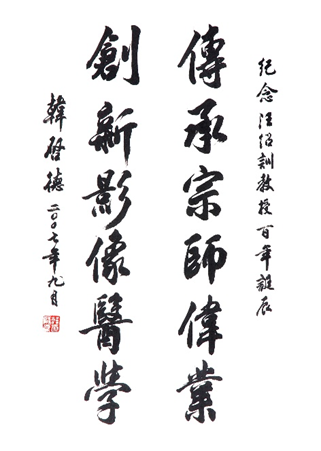 紀念汪绍訓教授百年誕辰
傳承宗師偉業
創新影像醫學
韓啓德二〇〇七年九月